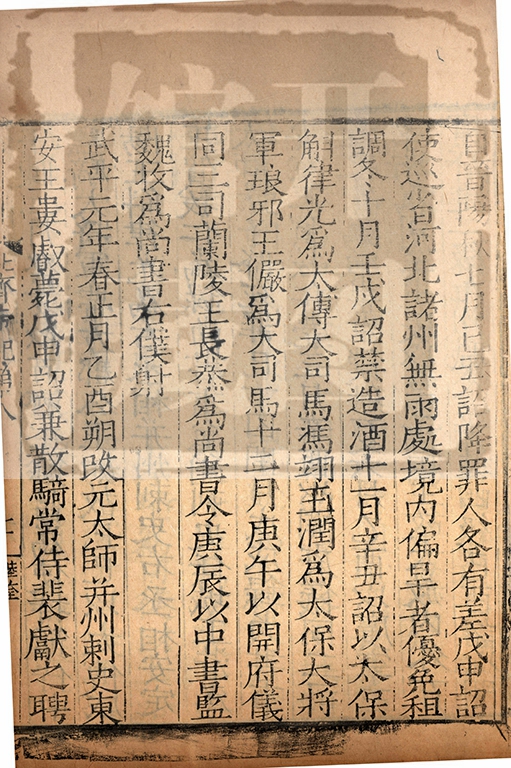 自晉陽秋七月己丑詔降罪人各有差戊申詔
使巡省河北諸州無雨處境內偏旱者優免租
調冬十月壬戌詔禁造酒十一月辛丑詔以太保
斛律光爲太傅大司馬馮翊王潤爲太保大將
軍琅邪王儼爲大司馬十二月庚午以開府儀
同三司蘭陵王長恭爲尚書令庚辰以中書監
魏收爲尚書右僕射
武平元年春正月乙酉朔改元太師并州刺史東
安王婁叡薨戊申詔兼散騎常侍裴獻之聘